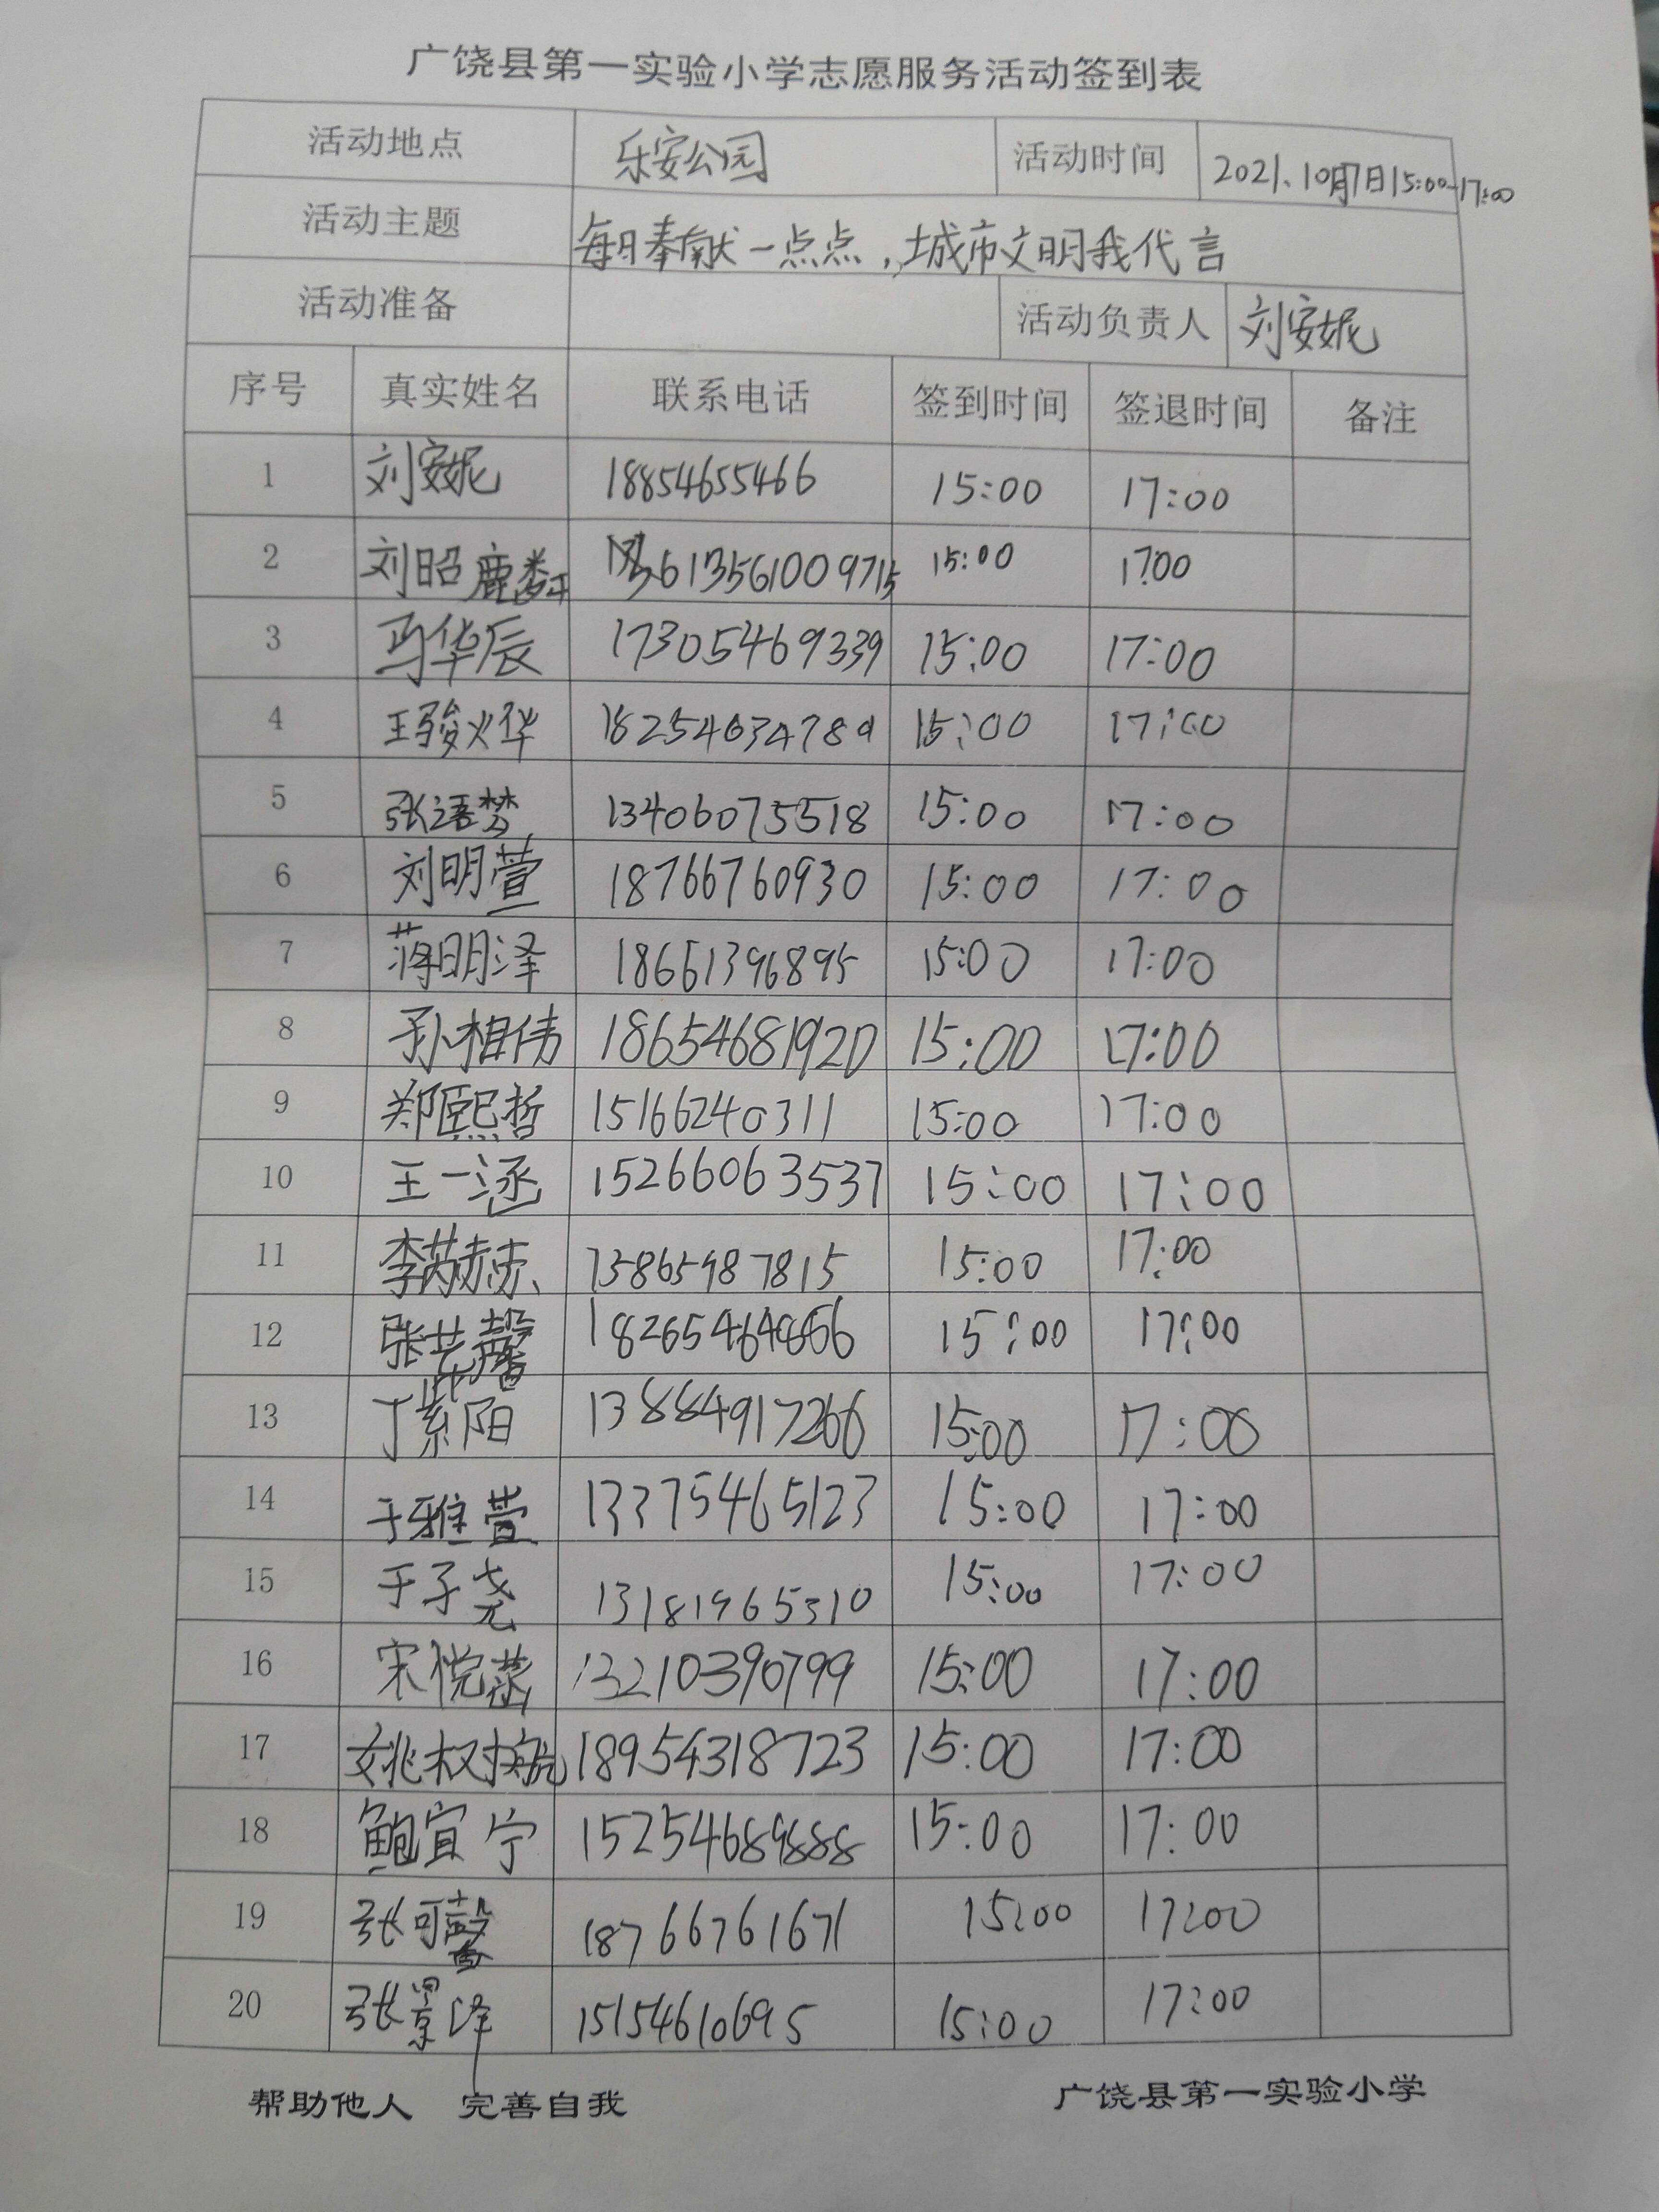 广饶县第一实验小学志愿服务活动签到表
活动地点 乐安公园 活动时间 2021.10月7日15:00-17:00
活动主题 每日奉献一点点，城市文明我代言
活动准备 活动负责人 刘安妮
序号 真实姓名 联系电话 签到时间 签退时间 备注
1 刘安妮 18854655466 15:00 17:00
2 刘昭 15:00 17:00
3 马华辰 17305469339 15:00 17:00
4 王骏烨 18254634789 15:00 17:00
5 张语梦 13406075518 15:00 17:00
6 刘明萱 18766760930 15:00 17:00
7 蒋明泽 18661396895 15:00 17:00
8 孙相伟 18654681920 15:00 17:00
9 郑熙哲 15166240311 15:00 17:00
10 王一涵 15266063537 15:00 17:00
11 李芮赫 13865487815 15:00 17:00
12 张芸馨 15:00 17:00
13 丁紫阳 13884917266 15:00 17:00
14 于雅萱 13375465123 15:00 17:00
15 于子尧 13181965310 15:00 17:00
16 宋悦菡 13210390799 15:00 17:00
17 姚权航 18954318723 15:00 17:00
18 鲍宜宁 15254689888 15:00 17:00
19 张可馨 18766761671 15:00 17:00
20 张景泽 15154610695 15:00 17:00
帮助他人 完善自我 广饶县第一实验小学